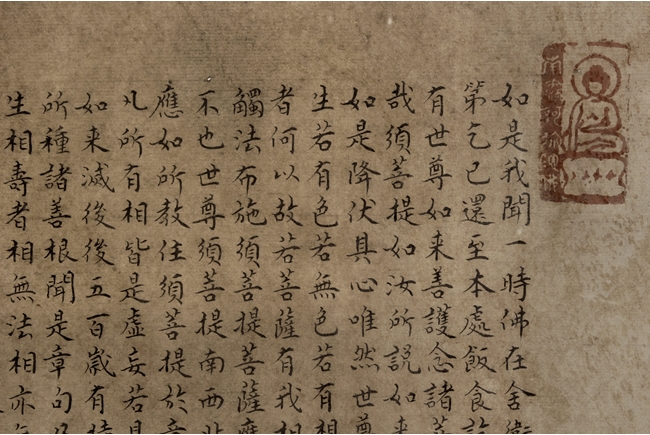 如是我聞一時佛在舍衛
第乞已還至本處飯食訖
有世尊如来善護念諸菩
哉須菩提如汝所説如来
如是降伏其心唯然世尊
生若有色若無色若有相
者何以故若菩薩有我相
觸法布施須菩提菩薩應
不也世尊須菩提南西北
應如所教住須菩提於意
凡所有相皆是虛妄若見
如来滅後後五百歲有持
所種諸善根聞是章句乃
生相壽者相無法相亦